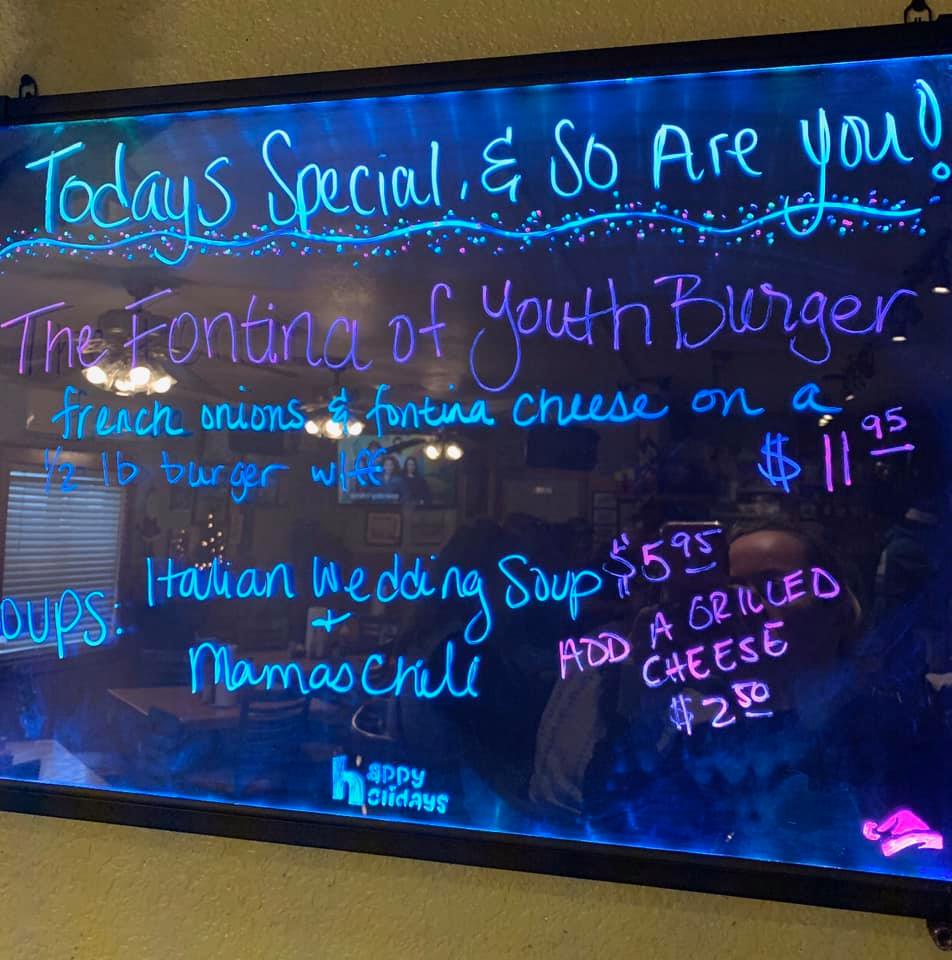 Todays Special, & So Are you!
The Fontina of Youth Burger
french onions & fontina cheese on a
1/2 lb burger w/ff
$11.95
oups: Italian Wedding Soup $5.95
+
Mamas Chili
ADD A GRILLED
CHEESE
$2.50
happy
holidays